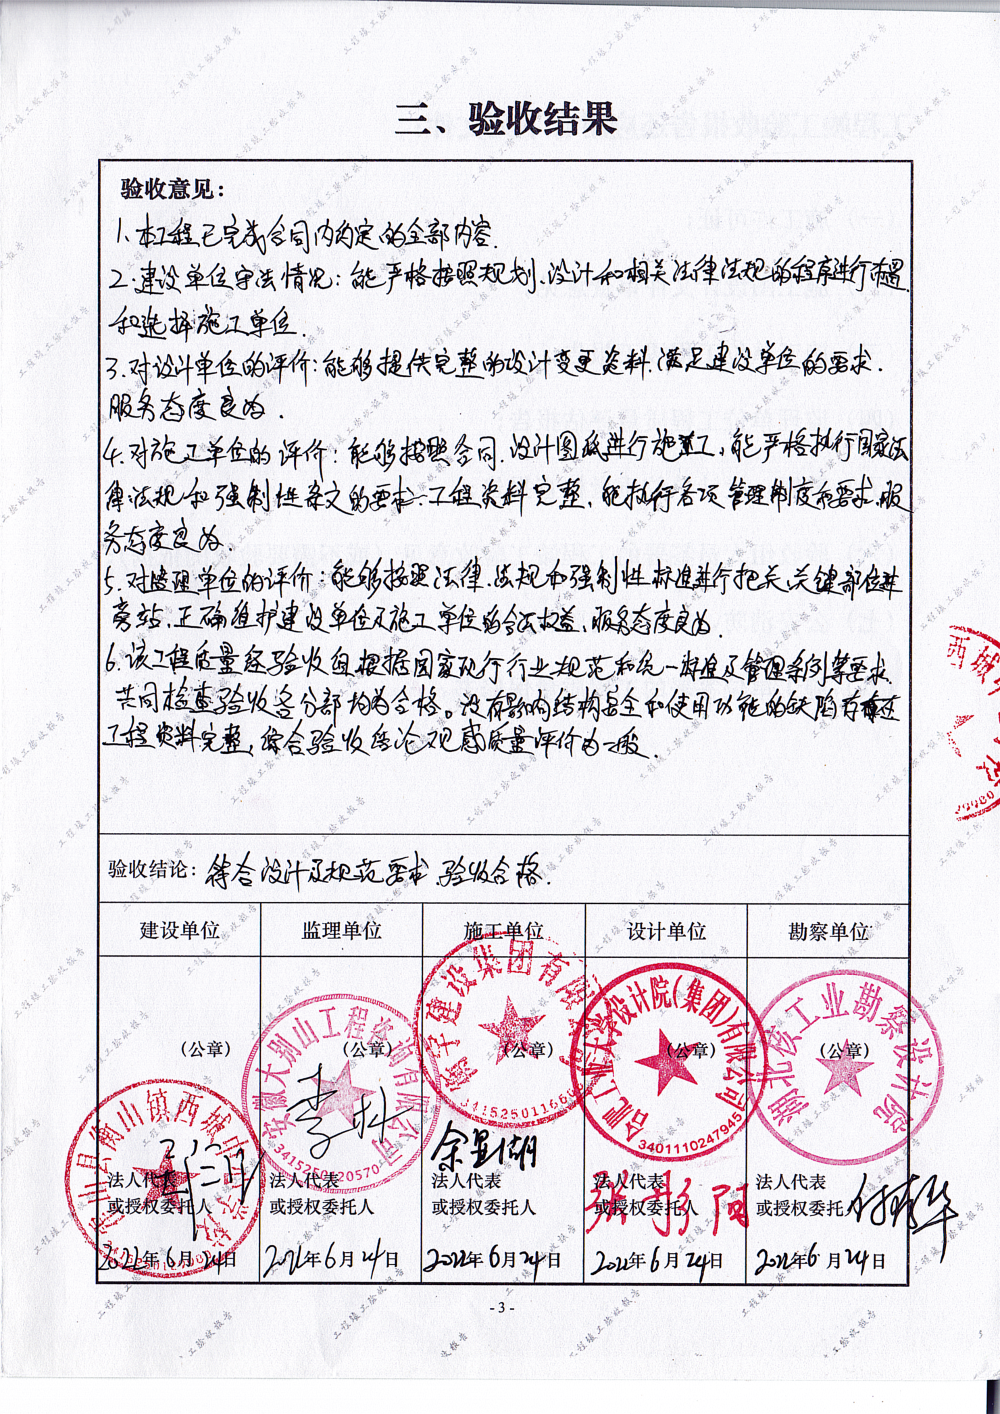 三、验收结果
验收意见:
1.本工程已完成合同内约定的全部内容.
2.建设单位守法情况:能严格按照规划.设计和相关法律法规的程序进行布置
和选择施工单位.
3.对设计单位的评价:能够提供完整的设计变更资料.满足建设单位的要求.
服务态度良为.
4.对施工单位的评价:能够按照合同.设计图纸进行施工,能严格执行国家法
律法规和强制性条文的要求.工程资料完整,能执行各项管理制度和要求.服
务态度良为.
5.对监理单位的评价:能够按照法律.法规和强制性标准进行把关.关键部位进
旁站.正确维护建设单位及施工单位的合法权益.服务态度良为.
6.该工程质量经验收组根据国家现行行业规范和统一标准及管理条例等要求.
共同检查验收各分部均为合格。没有影响结构安全和使用功能的缺陷存在
工程资料完整,综合验收结论观感质量评价为一般.
验收结论:符合设计及规范要求.验收合格.
建设单位 监理单位 施工单位 设计单位 勘察单位
(公章) (公章) (公章) (公章) (公章)
山县衡山镇西城中学校
安徽大别山工程咨询有限公司
3415250120570
建设集团有限
3415250116602
合肥工业大学设计院(集团)有限公司
3401110247945
湖北核工业勘察设计院
李科
余显胡
法人代表 法人代表 法人代表 法人代表 法人代表
或授权委托人 或授权委托人 或授权委托人 或授权委托人 或授权委托人
2022年6月24日 2022年6月24日 2022年6月24日 2022年6月24日 2022年6月24日
- 3 -
工程竣工验收报告